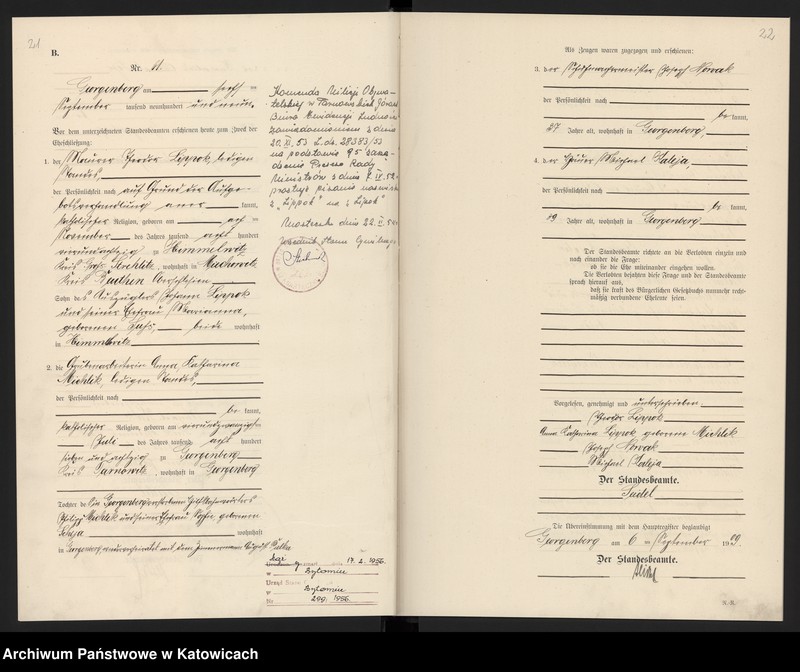 21
B.
Nr. 11.
Georgenberg am sechs ten
September tausend neunhundert und neun.
Vor dem unterzeichneten Standesbeamten erschienen heute zum Zweck der
Eheschließung:
1. der Maurer Theodor Lippok, ledigen
Standes,
der Persönlichkeit nach auf Grund der Aufge-
botsverhandlung aner kannt,
katholischer Religion, geboren am
November des Jahres tausend acht hundert
vierundachtzig zu Himmelwitz
Kreis Groß Strehlitz, wohnhaft in Miechowitz
Kreis Beuthen Oberschlesien,
Sohn des Auszüglers Johann Lippok
und seiner Ehefrau Marianna,
geborenen beide wohnhaft
in Himmelwitz
2. die Grubenarbeiterin Anna Katharina
Michlik, ledigen Standes,
der Persönlichkeit nach
be kannt,
katholischer Religion, geboren am vierundzwanzigsten
Juli des Jahres tausend acht hundert
sieben und achtzig zu Georgenberg
Kreis Tarnowitz, wohnhaft in Georgenberg
Tochter des in Georgenberg verstorbenen
Philipp Michlik und seiner Ehefrau Sophie geborenen
Saleja wohnhaft
in Georgenberg, wiederverheiratet mit dem Zimmermann
Komenda Milicji Obywa-
telskiej w Tarnowskich Górach
Biuro Ewidencji Ludności
zawiadomieniem z dnia
20.XI.53 L.dz. 28383/53
na podstawie § 5 zarzą-
dzenia Prezesa Rady
Ministrów z dnia 7.IV.52
prostuje pisanie nazwiska
z "Lippok" na "Lipok"
Miasteczko dnia 22.II.54
17.2.1956.
w Bytomiu
Urząd Stanu
w Bytomiu
Nr 299/1956.
22
Als Zeugen waren zugezogen und erschienen:
3. der Schuhmachermeister Joseph Nowak
der Persönlichkeit nach
be kannt,
27 Jahre alt, wohnhaft in Georgenberg,
4. der Häuer Michael Saleja,
der Persönlichkeit nach
be kannt,
49 Jahre alt, wohnhaft in Georgenberg
Der Standesbeamte richtete an die Verlobten einzeln und
nach einander die Frage:
ob sie die Ehe miteinander eingehen wollen.
Die Verlobten bejahten diese Frage und der Standesbeamte
sprach hierauf aus,
daß sie kraft des Bürgerlichen Gesetzbuchs nunmehr recht-
mäßig verbundene Eheleute seien.
Vorgelesen, genehmigt und unterschrieben.
Theodor Lippok
Anna Katharina Lippok geborene Michlik
Joseph Nowak
Michael Saleja
Der Standesbeamte.
Seidel
Die Übereinstimmung mit dem Hauptregister beglaubigt
Georgenberg am 6 ten September 1909.
Der Standesbeamte.
Archiwum Państwowe w Katowicach